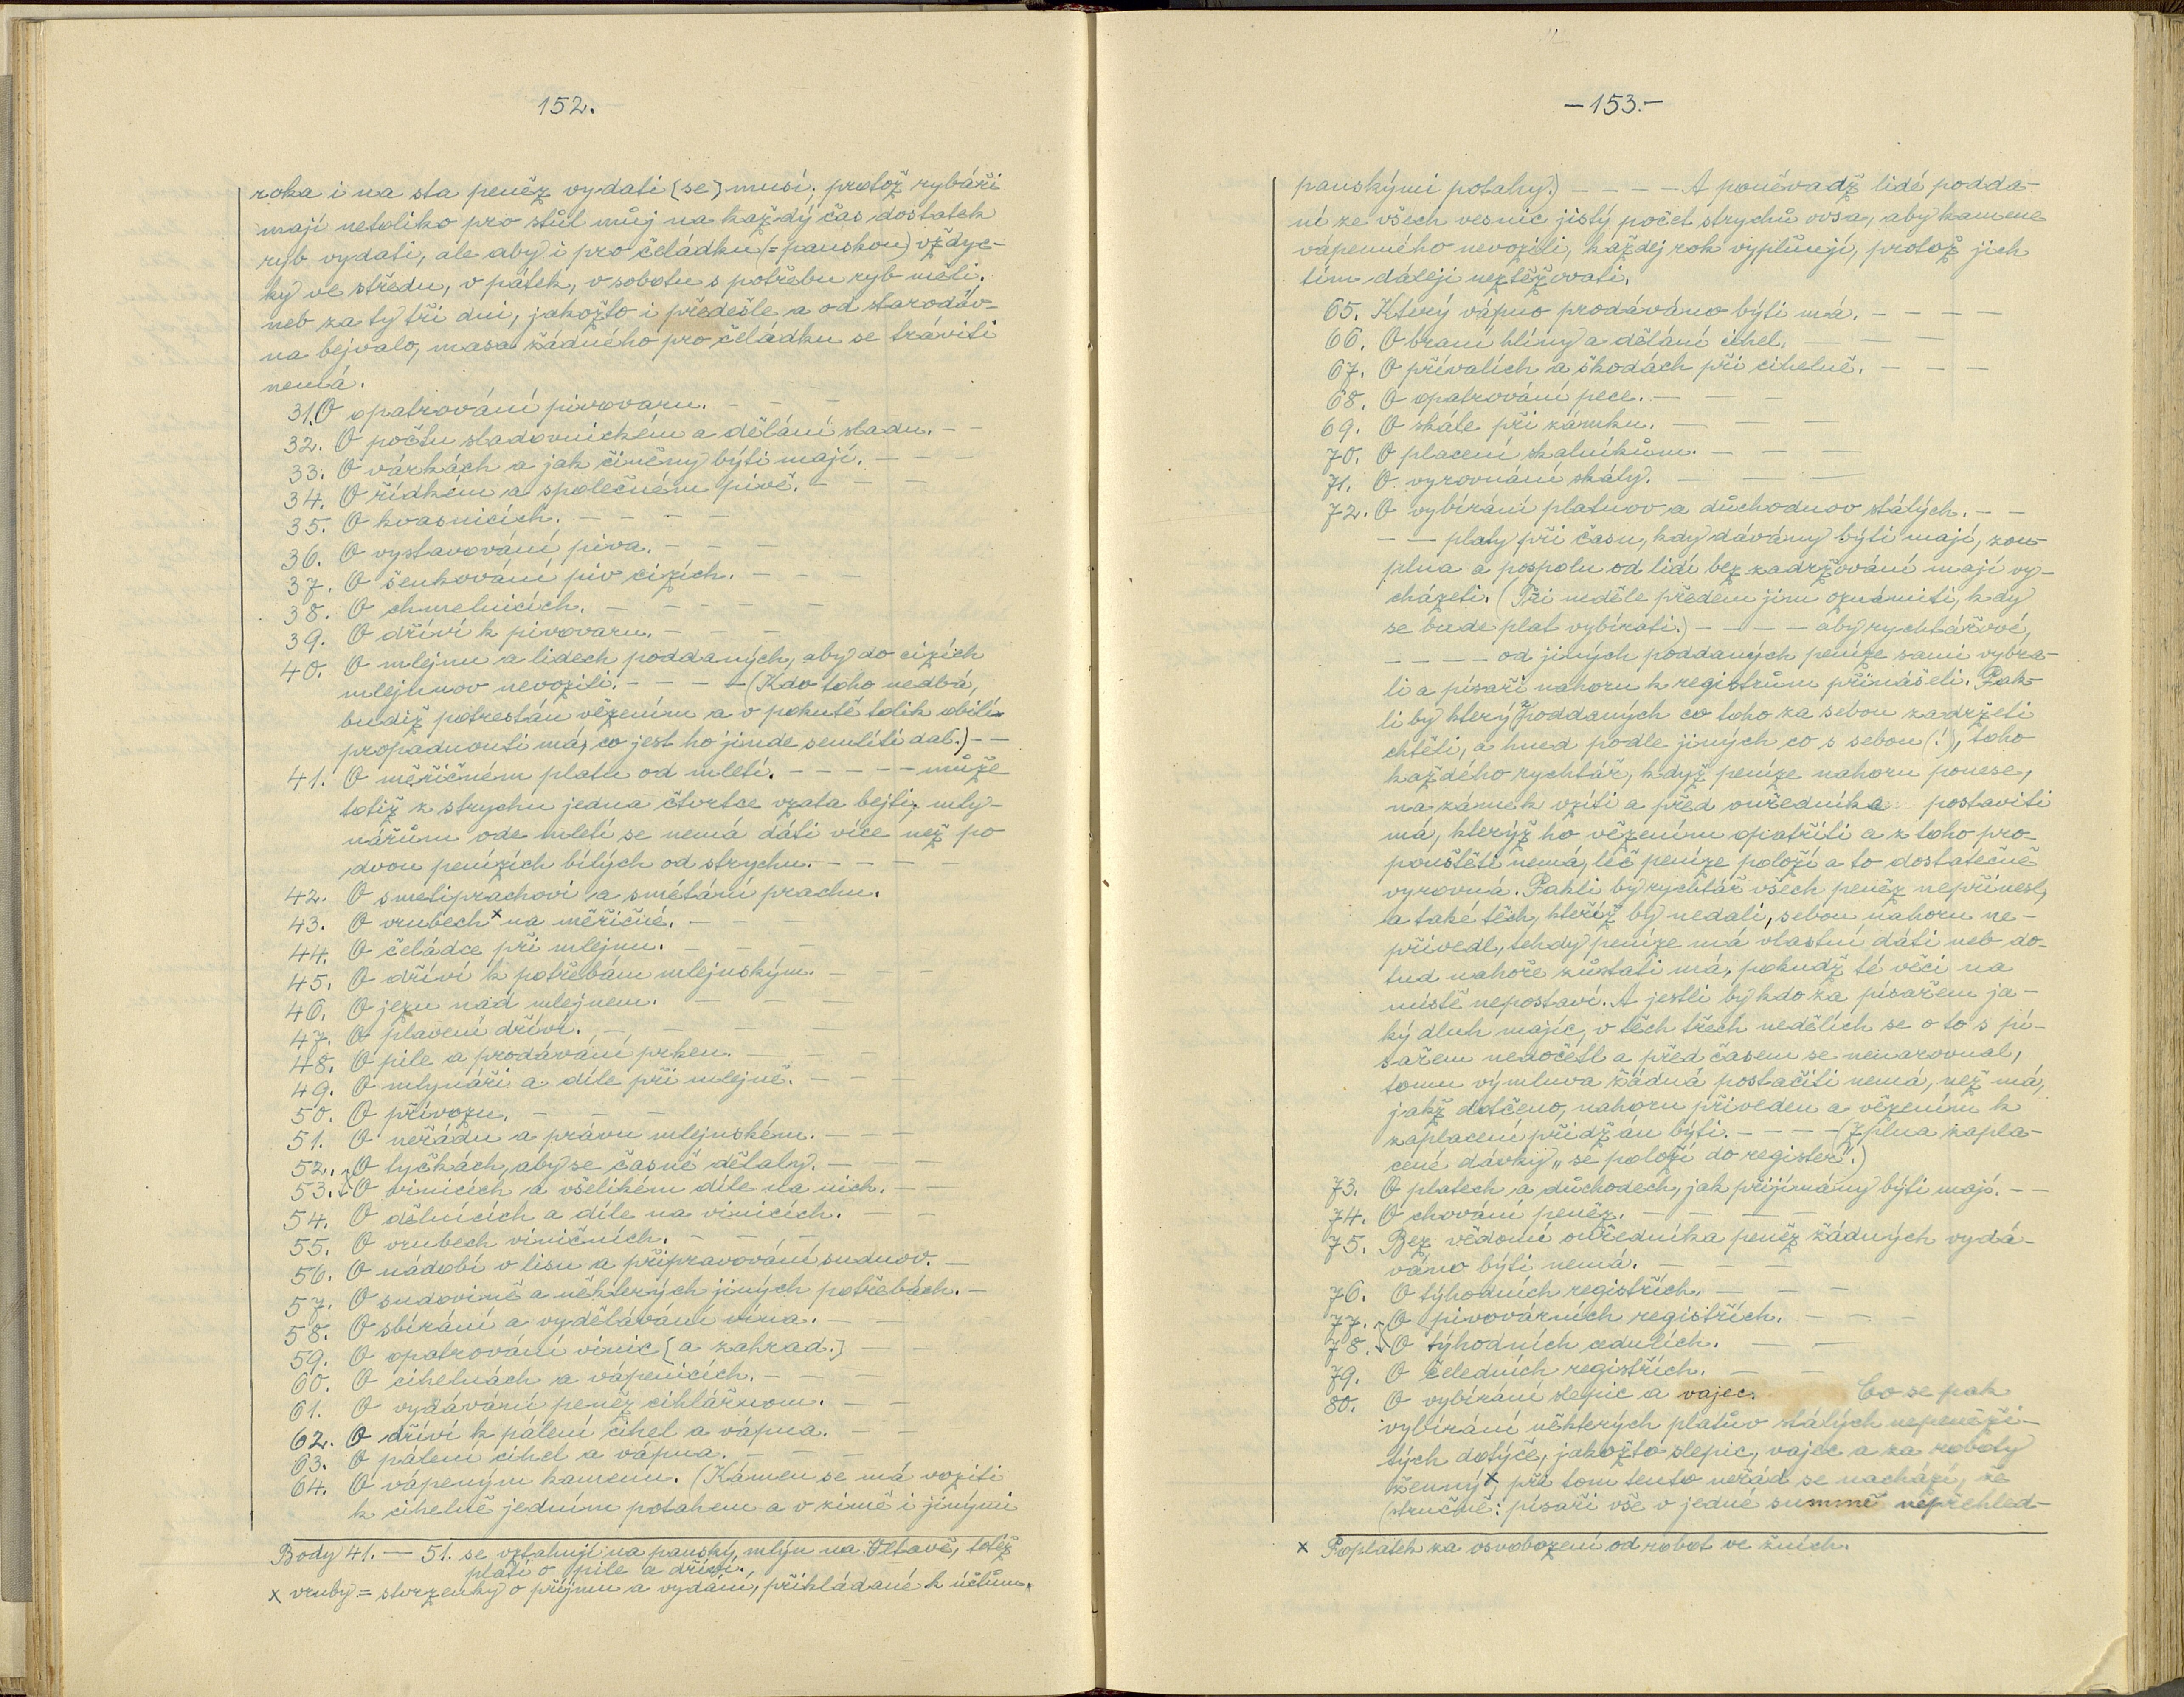 152.
roka i na sta peněz vydati [se] musí; protož rybáři
mají netoliko pro stůl můj na každý čas dostatek
ryb vydati, ale aby i pro čeládku (= panskou) vždyc-
ky ve středu, v pátek, v sobotu s potřebu ryb měli,
neb za ty tři dni, jakožto i předešle a od starodáv-
na bejvalo, masa žádného pro čeládku se tráviti
nemá.
31. O opatrování pivovaru. - - -
32. O počtu sladovnickém a dělání sladu. - -
33. O várkách a jak činěny býti mají. - - -
34. O řídkém a společném pivě. - - -
35. O kvasnicích. - - - -
36. O vystavování piva. - - -
37. O šenkování piv cizích. - - -
38. O chmelnicích. - - - -
39. O dříví k pivovaru. - - -
40. O mlejnu a lidech poddaných, aby do cizích
mlejnuov nevozili. - - - - (Kdo toho nedbá,
budiž potrestán vězením a v pokutě tolik obilí
propadnouti má, co jest ho jinde semlíti dal.) - -
41. O měřičném platu od mletí. - - - - - může
totiž z strychu jedna čtvrtce vzata bejti, mly-
nářům ode mletí se nemá dáti více než po
dvou penízích bílých od strychu. - - - -
42. O smetiprachovi a smétání prachu.
43. O vrubech x na měřičné. - - -
44. O čeládce při mlejnu. - - -
45. O dříví k potřebám mlejnským. - - -
46. O jezu nad mlejnem. - - -
47. O plavení dříví. - - - -
48. O pile a prodávání prken. - - -
49. O mlynáři a díle při mlejně. - - -
50. O přívozu. - - -
51. O neřádu a právu mlejnském. - - -
52. O tyčkách, aby se časně dělaly. - - -
53. O vinicích a všelikém díle na nich. - -
54. O dělnících a díle na vinicích. - -
55. O vrubech viničních. - - -
56. O nádobí v lisu a připravování suduov. -
57. O sudovině a některých jiných potřebách. -
58. O sbírání a vydělávání vína. - -
59. O opatrování vinic [a zahrad.] - -
60. O cihelnách a vápenicích. - - -
61. O vydávání peněz cihlářuom. - -
62. O dříví k pálení cihel a vápna. - -
63. O pálení cihel a vápna. - - -
64. O vápeným kamenu. (Kámen se má voziti
k cihelně jedním potahem a v zimě i jinými
Body 41. — 51. se vztahují na panský mlýn na Vltavě, totéž
platí o pile a dříví.
x vruby = stvrzenky o příjmu a vydání, přikládané k účtům.
— 153. —
panskými potahy.) - - - - A poněvadž lidé podda-
ní ze všech vesnic jistý počet strychů ovsa, aby kamene
vápenného nevozili, každej rok vyplňují, protož jich
tím dáleji neztěžovati.
65. Který vápno prodáváno býti má. - - - -
66. O braní hlíny a dělání cihel. - - -
67. O přívalích a škodách při cihelně. - - -
68. O opatrování pece. - - -
69. O skále při zámku. - - -
70. O placení skalníkům. - - -
71. O vyrovnání skály. - - -
72. O vybírání platuov a důchoduov stálých. - -
- - platy při času, kdy dávány býti mají, zou-
plna a pospolu od lidí bez zadržování mají vy-
cházeti. (Tři neděle předem jim oznámiti, kdy
se bude plat vybírati.) - - - - aby rychtářové,
- - - - od jiných poddaných peníze sami vybra-
li a písaři nahoru k registrům přinášeli. Pak-
li by který z poddaných co toho za sebou zadržeti
chtěli, a hned podle jiných co s sebou (!), toho
každého rychtář, když peníze nahoru ponese,
na zámek vzíti a před ouředníka postaviti
má, kterýž ho vězením opatřiti a z toho pro-
pouštěti nemá, leč peníze položí a to dostatečně
vyrovná. Pakli by rychtář všech peněz nepřinesl,
a také těch, kteříž by nedali, sebou nahoru ne-
přivedl, tehdy peníze má vlastní dáti neb do-
tud nahoře zůstati má, pokudž té věci na
místě nepostaví. A jestli by kdo za písařem ja-
ký dluh majíc, v těch třech nedělích se o to s pí-
sařem nenočetl a před časem se nenarovnal,
tomu výmluva žádná postačiti nemá, než má,
jakž dotčeno, nahoru přiveden a vězením k
zaplacení přidržán býti. - - - - (Zplna zapla-
cené dávky „se položí do register“.)
73. O platech a důchodech, jak přijímány býti mají. - -
74. O chování peněz. - - - -
75. Bez vědomí ouředníka peněz žádných vydá-
váno býti nemá. - - -
76. O týhodních registřích. - - -
77. O pivovárních registřích. - - -
78. O týhodních cedulích. - -
79. O čeledních registřích. - -
80. O vybírání slepic a vajec. Co se pak
vybírání některých platův stálých nepeněži-
tých dotýče, jakožto slepic, vajec a za roboty
ženný x, při tom tento neřád se nachází, že
(stručně: písaři vše v jedné summě nepřehled-
x Poplatek za osvobození od robot ve žních.